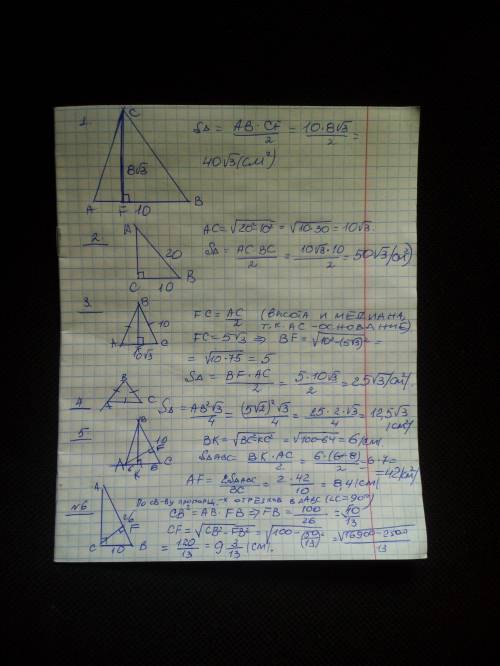 1.
C
8√3
A F 10 B
S△ = AB·CF/2 = 10·8√3/2 =
40√3 (см²)
2
A
20
C 10 B
AC = √20²-10² = √10·30 = 10√3.
S△ = AC·BC/2 = 10√3·10/2 = 50√3 (см²)
3.
B
10
A F C
10√3
FC = AC/2 (высота и медиана,
т.к. AC - основание)
FC = 5√3 ⇒ BF = √10²-(5√3)² =
= √100-75 = 5
S△ = BF·AC/2 = 5·10√3/2 = 25√3 (см²)
4
B
A C
S△ = AB²√3/4 = (5√2)²√3/4 = 25·2·√3/4 = 12,5√3
(см²)
5
B
10
F
A 6 K 8 C
BK = √BC²-KC² = √100-64 = 6 (см)
S△ABC = BK·AC/2 = 6·(6+8)/2 = 6·7=
=42 (см²)
AF = 2S△ABC/BC = 2·42/10 = 8,4 (см)
№6
A
26
F
C 10 B
По св-ву пропорц. отрезков в △ABC (∠C=90°)
CB² = AB·FB ⇒ FB = 100/26 = 50/13
CF = √CB²-FB² = √100-(50/13)² = √16900-2500/13
= 120/13 = 9 3/13 (см).